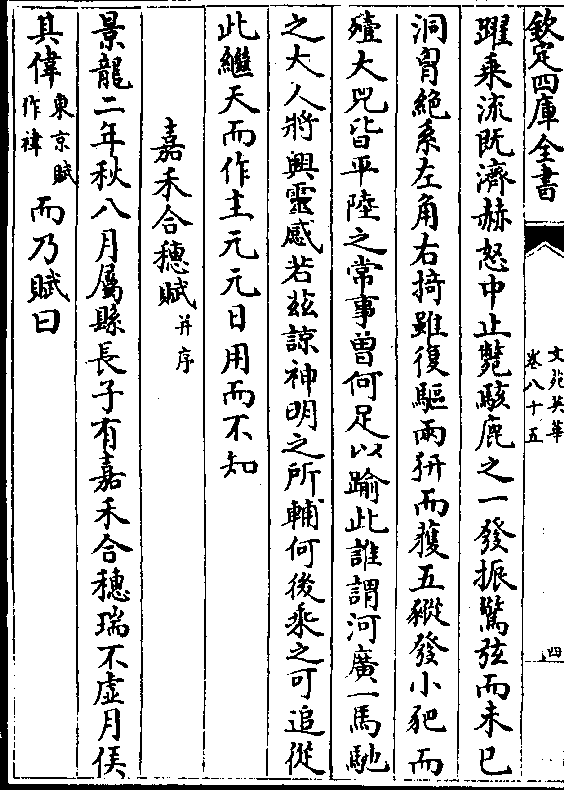 欽定四庫全書
文苑英華
卷八十五
四
躍乘流既濟赫怒中止斃駭鹿之一發振驚弦而未已
洞胷絶系左角右掎雖復驅兩豣而獲五豵發小豝而
殪大兕皆平陸之常事曽何足以踰此誰謂河廣一馬馳
之大人將興靈感若兹諒神明之所輔何後乘之可追從
此繼天而作主元元日用而不知
嘉禾合穗賦并序
景龍二年秋八月屬縣長子有嘉禾合穗瑞不虚月俟
其偉東京賦作禕而乃賦曰